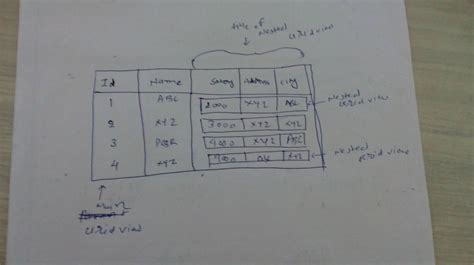 title of
Nested
Gridview
Id Name Salary Address City
1 ABC 2000 XYZ ABC
Nested
Gridview
2 XYZ 3000 XYZ
3 PQR 4000 XYZ ABC
4 XYZ XYZ
Nested
Gridview
Main
Gridview